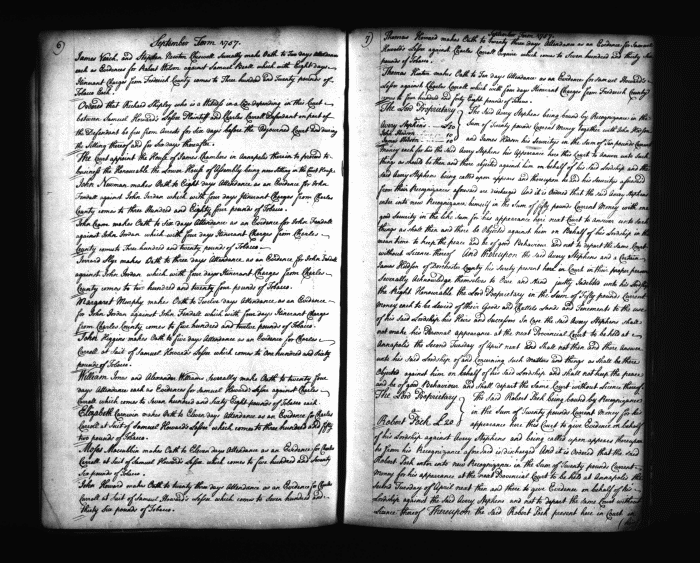 6
September Term 1757.
James Veach, and Stephen Newton Chiswell Severally make Oath to Ten days Attendance
each as Evidences for Robert Wilson against Samuel Perrie which with Eight days
Itinerant Charges from Frederick County comes to Three hundred Eighty pounds of
Tobacco Each.
Ordered that Richard Shipley who is a Witness in a Cause depending in this Court
between Samuel Howard's Lessee Plaintiff and Charles Carroll Defendant on part of
the Defendant be free from Arrests for Six days before the adjourned Court and during
the Sitting thereof and for Six days thereafter.
The Court appoint the House of James Chambers in Annapolis therein to proceed to
business the Honourable the Lower House of Assembly being now sitting in the Court House.
John Newman makes Oath to Eight days Attendance as an Evidence for John
Fendall against John Jordan which with four days Itinerant Charges from Charles
County comes to three Hundred and Eighty four pounds of Tobacco.
John Logan makes Oath to Six days Attendance as an Evidence for John Fendall
against John Jordan which with four days Itinerant Charges from Charles
County comes to three hundred and twenty pounds of Tobacco.
Slye makes Oath to three days Attendance as an Evidence for John Fendall
against John Jordan which with four days Itinerant Charges from Charles
County comes to two hundred and twenty four pounds of Tobacco.
Margaret Murphy makes Oath to Twelve days Attendance as an Evidence
for John Jordan against John Fendall which with four days Itinerant Charges
from Charles County comes to five hundred and twelve pounds of Tobacco.
John Higgins makes Oath to five days Attendance as an Evidence for Charles
Carroll at Suit of Samuel Howards Lessee which comes to One hundred and sixty
pounds of Tobacco.
William Jones and Alexander Williams Severally make Oath to twenty four
days Attendance each as Evidences for Samuel Howards Lessee against Charles
Carroll which comes to Seven hundred and Sixty Eight pounds of Tobacco each.
Elizabeth makes Oath to Eleven days Attendance as an Evidence for Charles
Carroll at Suit of Samuel Howards Lessee which comes to three hundred and fifty
two pounds of Tobacco.
Moses Maccubbin makes Oath to Eleven days Attendance as an Evidence for Charles
Carroll at Suit of Samuel Howards Lessee which comes to five hundred and Seventy
Six pounds of Tobacco.
John Howard makes Oath to twenty three days Attendance as an Evidence for Charles
Carroll at Suit of Samuel Howard's Lessee which comes to Seven hundred and
thirty Six pounds of Tobacco.
7
September Term 1757.
Thomas Howard makes Oath to twenty three days Attendance as an Evidence for Samuel
Howards Lessee against Charles Carroll Esquire which comes to Seven hundred and thirty Six
pounds of Tobacco.
Thomas makes Oath to Ten days Attendance as an Evidence for Samuel Howard's
Lessee against Charles Carroll which with four days Itinerant Charges from Frederick County
comes to four hundred and forty Eight pounds of Tobacco.
The Lord Proprietary
vs
Avery Stephens
John
James Hodson
The Said Avery Stephens being bound by Recognizance in the
Sum of Twenty pounds Current Money together with John
and James Hodson his Securities in the Sum of Ten pounds Current
Money each for his the said Avery Stephens his Appearance here this Court to answer unto such
things as should be then and there objected against him on behalf of his said Lordship and the
said Avery Stephens being called upon appears and thereupon he and his Securities aforesaid
from their Recognizances aforesaid are discharged And it is Ordered that the said Avery Stephens
enter into new Recognizance himself in the Sum of fifty pounds Current Money with one
good Security in the like Sum for his appearance here next Court to answer unto such
things as shall then and there be Objected against him on Behalf of his Lordship in the
mean time to keep the peace and be of good Behaviour and not to depart the same Court
without Licence thereof And thereupon the said Avery Stephens and a Certain
James Hodson of Dorchester County his Surety present here in Court in their proper persons
Severally Acknowledge themselves to Owe and Stand justly indebted unto his Lordship
the Right Honourable the Lord Proprietary in the Sum of Fifty pounds Current
Money each to be Levied of their Goods and Chattels Lands and Tenements to the use
of his said Lordship his Heirs and Successors In Case the said Avery Stephens shall
not make his Personal appearance at the next Provincial Court to be held at
Annapolis the Second Tuesday of April next and Shall not then and there answer
unto his said Lordship of and Concerning such Matters and things as shall be there
Objected against him on behalf of his said Lordship and shall not keep the peace
and be of good Behaviour and Shall depart the same Court without licence thereof
The Lord Proprietary
vs
Robert Peck £20
the said Robert Peck being bound by Recognizance
in the Sum of Twenty pounds Current Money for his
appearance here this Court to give Evidence in behalf
of his Lordship against Avery Stephens and being called upon appears thereupon
he from his Recognizance aforesaid is discharged And it is Ordered that the said
Robert Peck enter into new Recognizance in the Sum of Twenty pounds Current
Money for his appearance at the next Provincial Court to be held at Annapolis the
second Tuesday of April next then and there to give Evidence on behalf of his
Lordship against the said Avery Stephens and not to depart the same Court without
licence thereof Thereupon the said Robert Peck present here in Court in